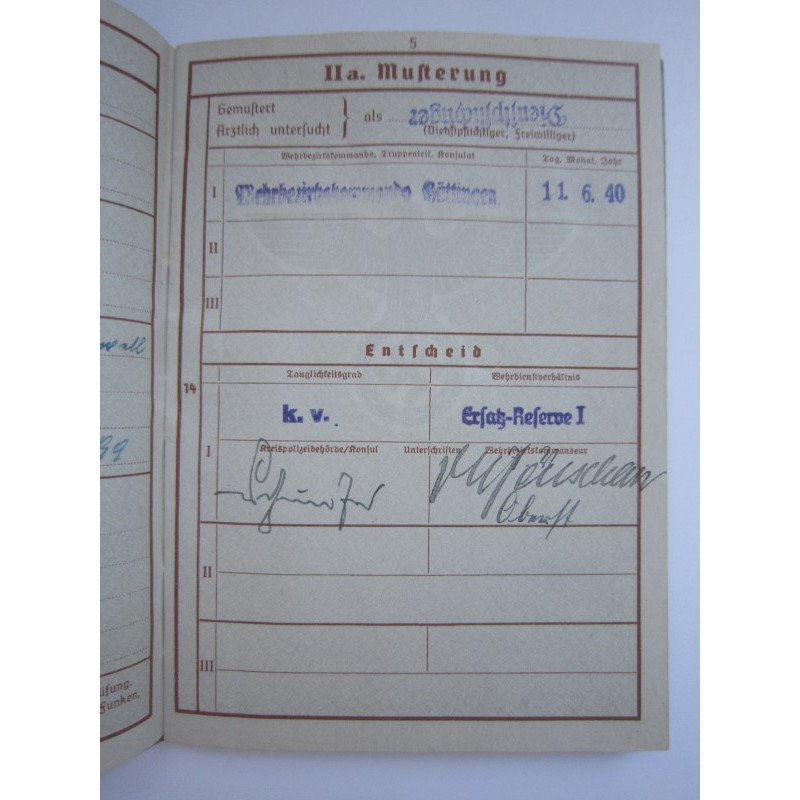 5
II a. Musterung
Gemustert
Ärztlich untersucht } als Dienstpflichtiger
(Dienstpflichtiger, Freiwilliger)
Wehrbezirkskommando, Truppenteil, Konsulat Tag, Monat, Jahr
I Wehrbezirkskommando Göttingen. 11. 6. 40
II
III
Entscheid
Tauglichkeitsgrad Wehrdienstverhältnis
14
k. v. Ersatz-Reserve I
I Kreispolizeibehörde/Konsul Unterschriften Wehrbezirkskommandeur
Oberst
II
III
all
39
üfung.
Funken.